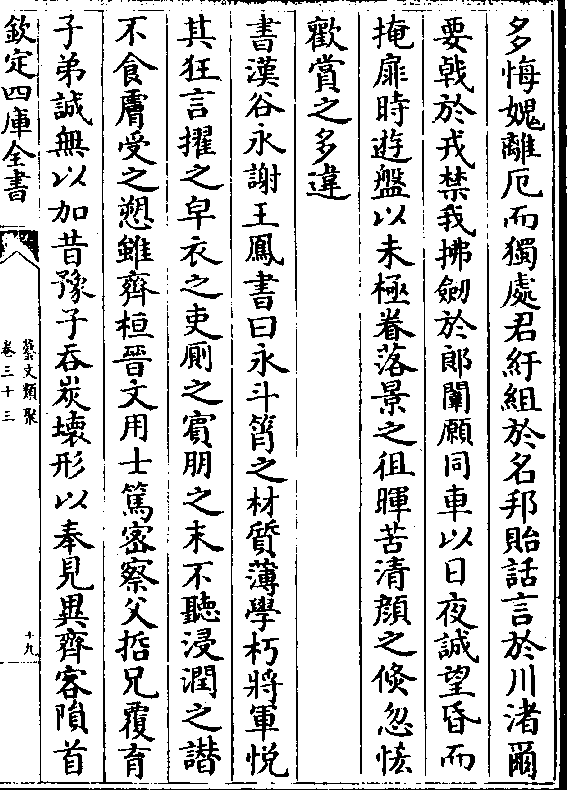 多悔媿離厄而獨處君紆組於名邦貽話言於川渚爾
要㦸於戎禁我拂劒於郎闈願同車以日夜誠望昏而
掩扉時遊盤以未極眷落景之徂暉苦清顔之倐忽怯
歡賞之多違
書漢谷永謝王鳳書曰永斗筲之材質薄學朽將軍悅
其狂言擢之皁衣之吏厠之賓朋之末不聽浸潤之譖
不食膚受之愬雖齊桓晉文用士篤密察父悊兄覆育
子弟誠無以加昔豫子吞炭壞形以奉見異齊客隕首
欽定四庫全書
藝文類聚
卷三十三
十九